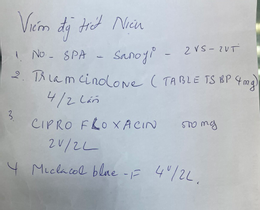 Viêm đg tiết Niệu
1. NO - SPA - Sanofi - 2VS - 2VT
2. Triamcinolone (TABLETS BP 4mg)
4/2 Lần
3
CIPRO FLOXACIN 500 mg
2V/2L
4 Miclacol blue - F 4v/2L.